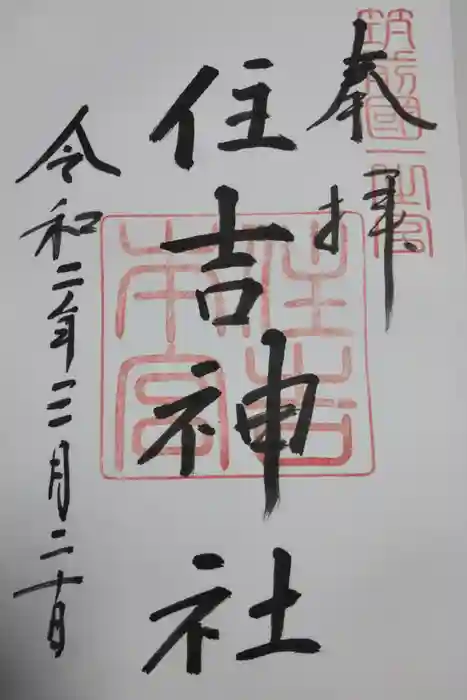 筑前國一之宮
奉拝
住吉神社
住吉本宮
令和二年三月二十日